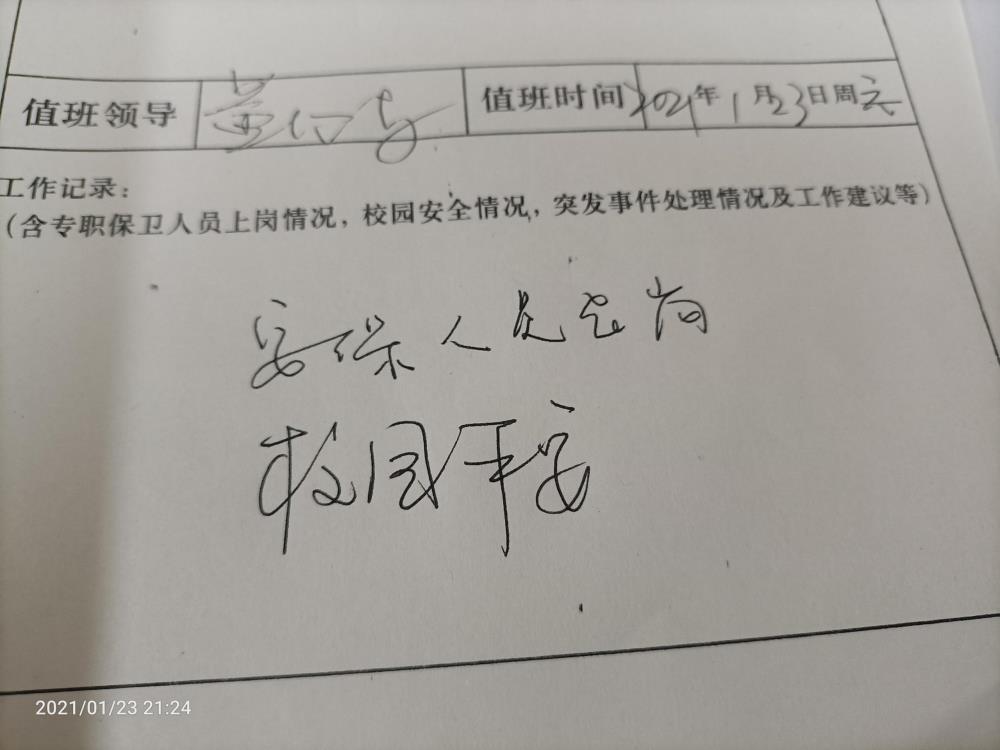 值班领导 值班时间 2021年1月23日周六
工作记录：
（含专职保卫人员上岗情况，校园安全情况，突发事件处理情况及工作建议等）
安保人员在岗
校园平安
2021/01/23 21:24